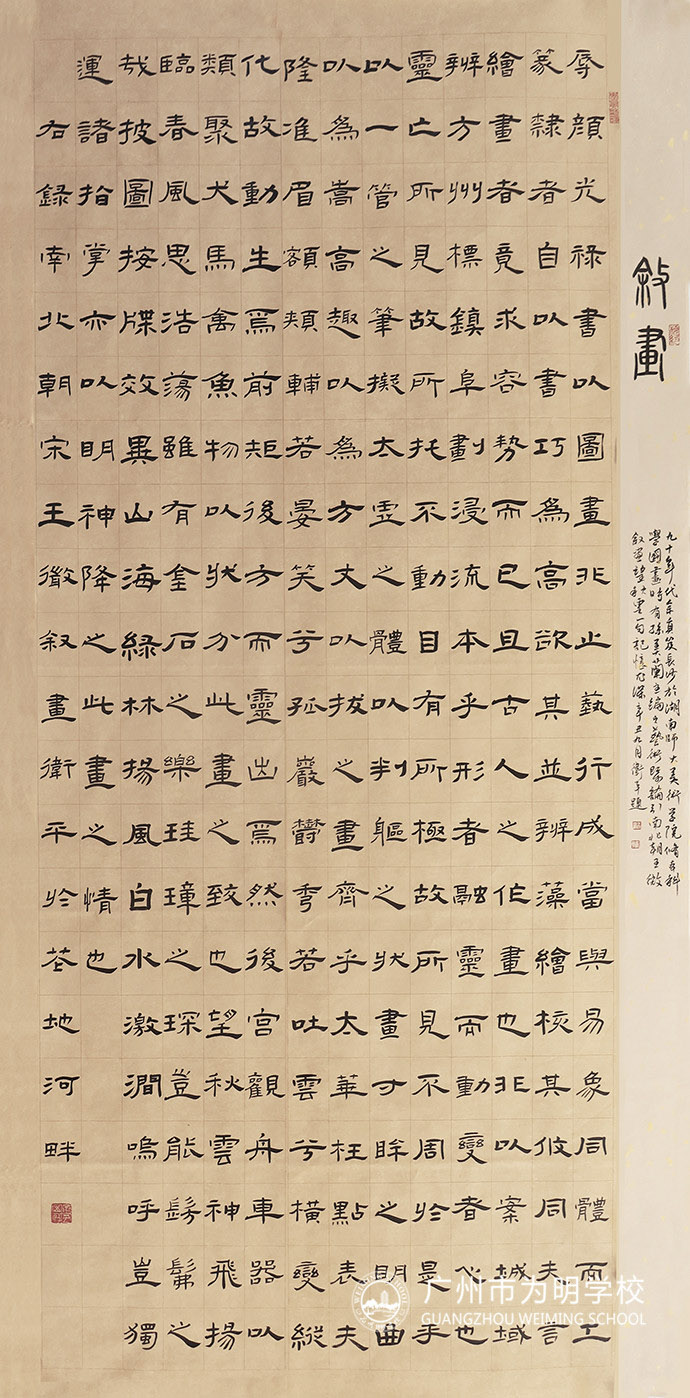 敘畫
九十年代余負笈長沙於湖南師大美術學院修本科
學國畫時有孫美蘭主編之藝術概論引南北朝王微
敘畫望秋雲一句記憶尤深辛丑九月衛平題
辱顏光祿書以圖畫非止藝行成當與易象同體而工
篆隸者自以書巧為高欲其並辨藻繪核其攸同夫言
繪畫者竟求容勢而已且古人之作畫也非以案城域
辨方州標鎮阜劃浸流本乎形者融靈而動變者心也
靈亡所見故所托不動目有所極故所見不周於是乎
以一管之筆擬太虛之體以判軀之狀畫寸眸之明曲
以為嵩高趣以為方丈以拔之畫齊乎太華枉點表夫
隆准眉額頰輔若晏笑兮孤巖鬱秀若吐雲兮橫變縱
化故動生焉前矩後方而靈出焉然後宮觀舟車器以
類聚犬馬禽魚物以狀分此畫之致也望秋雲神飛揚
臨春風思浩蕩雖有金石之樂珪璋之琛豈能髣髴之
哉披圖按牒效異山海綠林揚風白水激澗嗚呼豈獨
運諸指掌亦以明神降之此畫之情也
右錄南北朝宋王微敘畫衛平於花地河畔
广州市为明学校
GUANGZHOU WEIMING SCHOOL